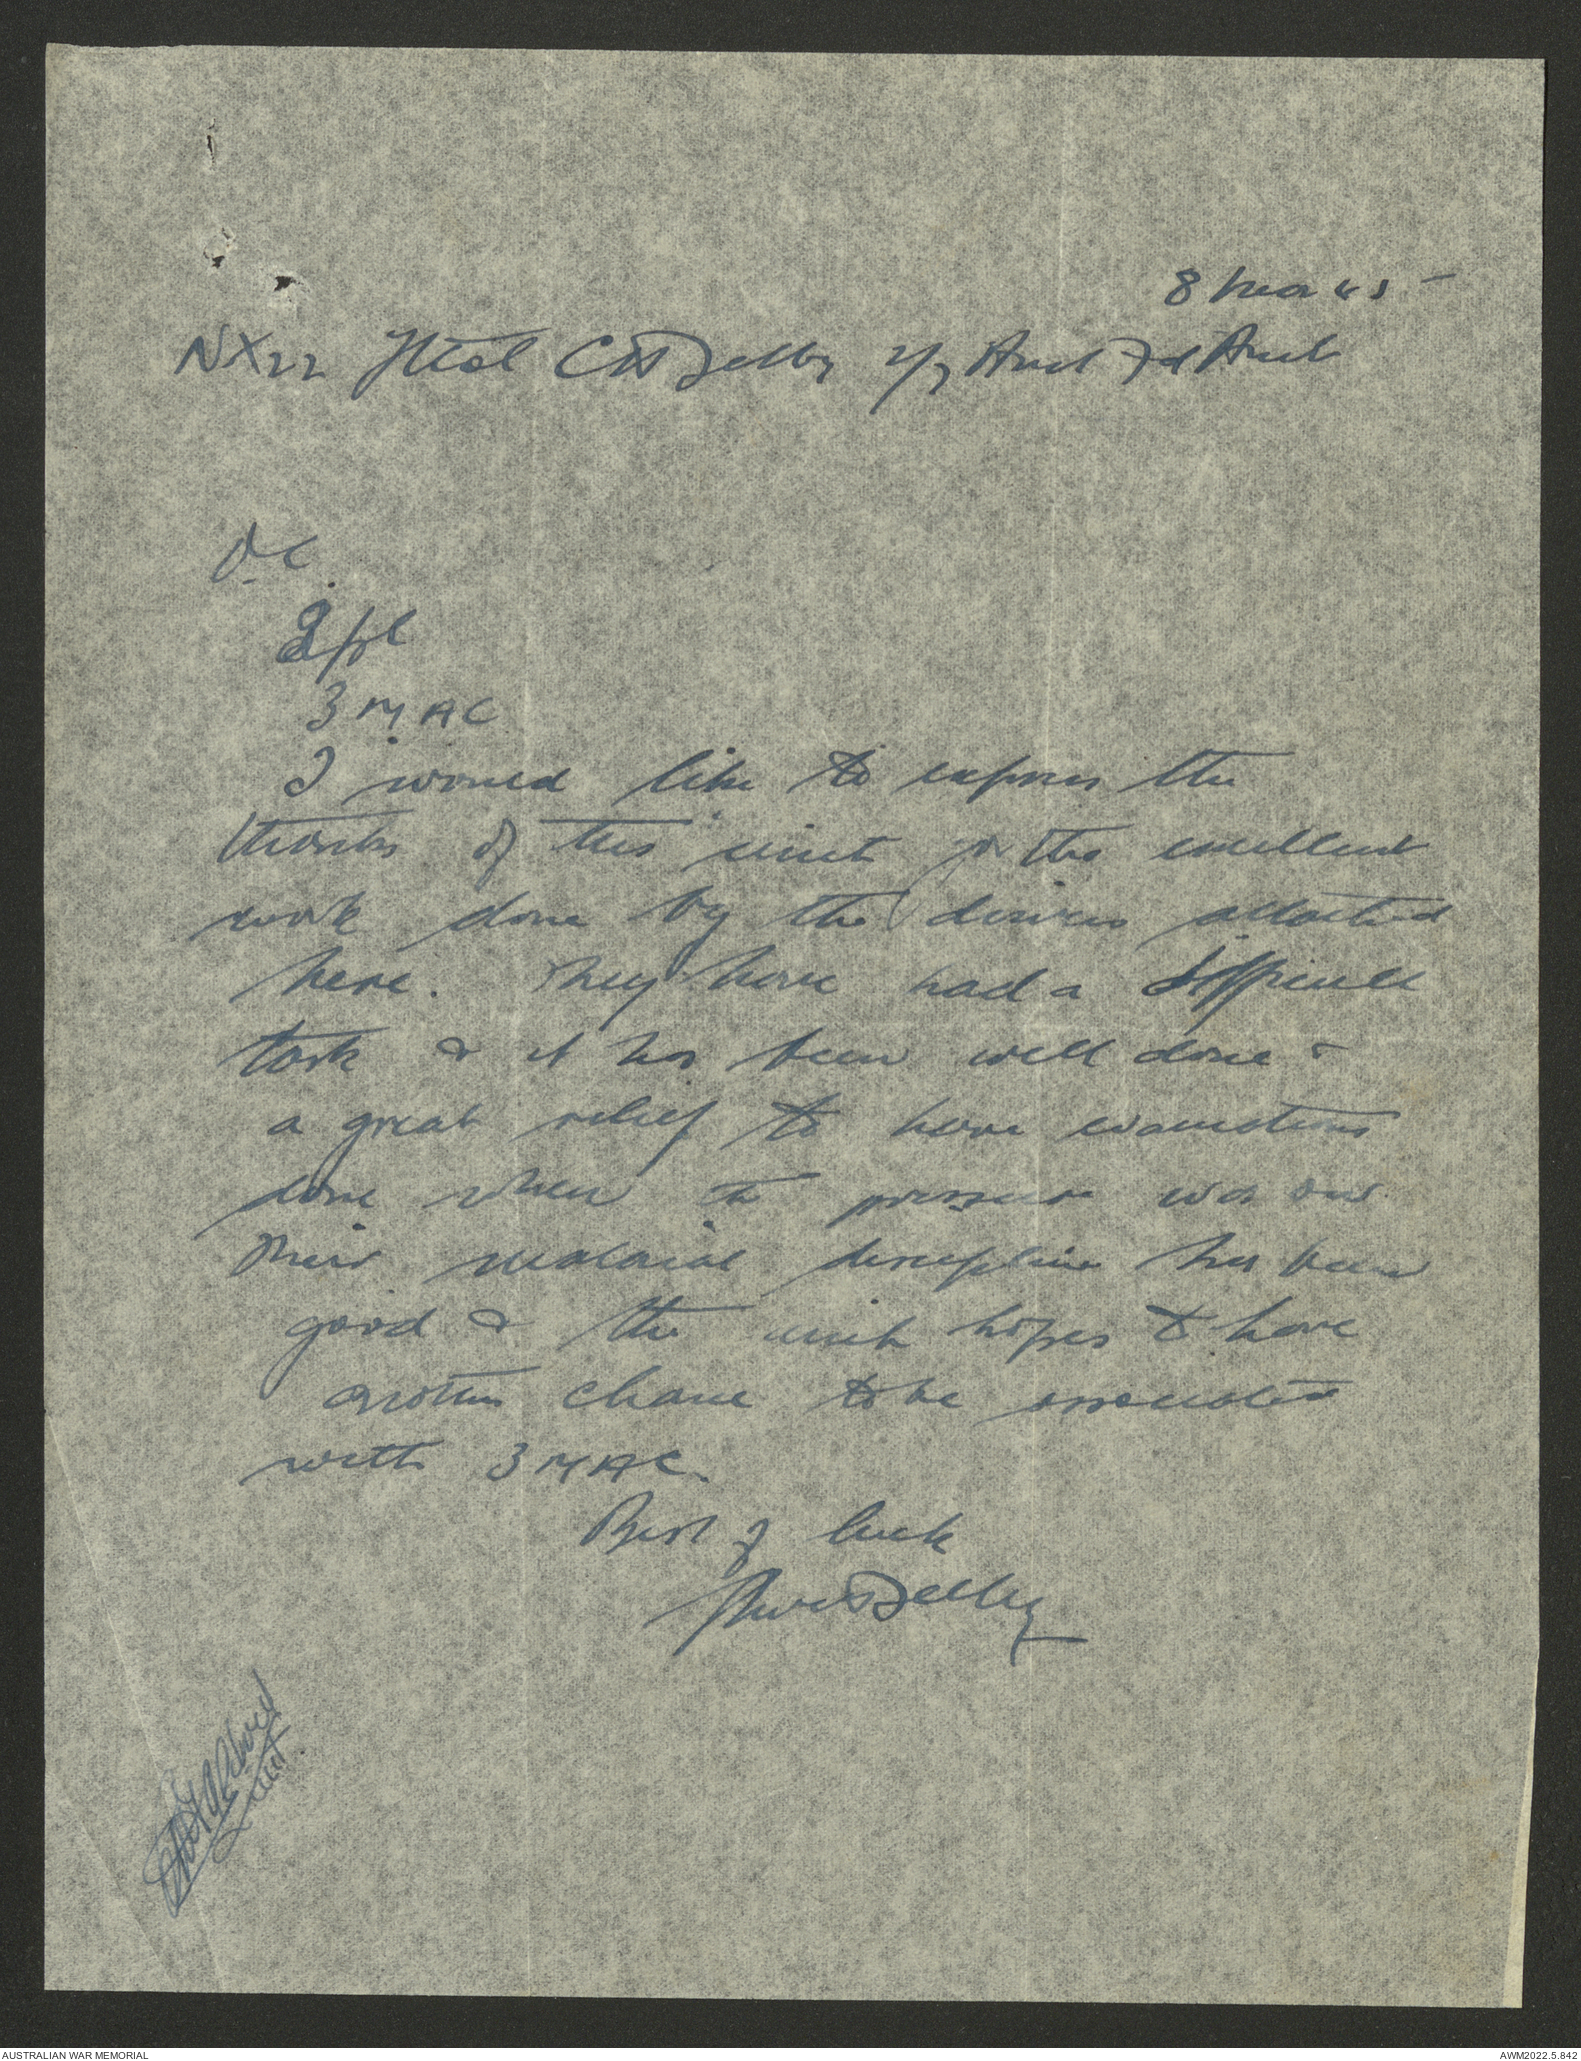 8 Mar 45
NX22 Lt Col C H Selby 2/7 Aust Fd Amb
OC
2 pl
3 MAC
I would like to express the
thanks of this unit for the excellent
work done by the drivers attached
here. They have had a difficult
task & it has been well done &
a great relief to have evacuations
done when the pressure was on.
Their malarial discipline has been
good & the unit hopes to have
another chance to be associated
with 3 MAC.
Best of luck
Selby
AUSTRALIAN WAR MEMORIAL
AWM2022.5.842